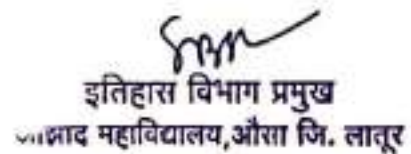 इतिहास विभाग प्रमुख
महाविद्यालय,औसा जि. लातूर